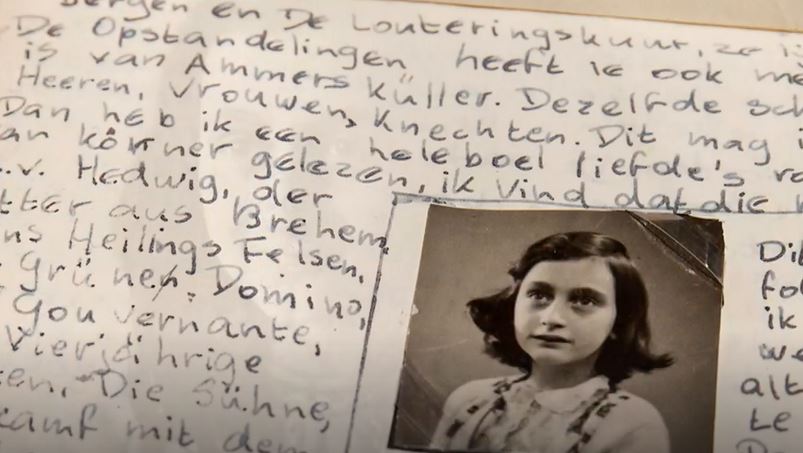 bergen en De Louteringskuur, ze is
De Opstandelingen heeft ie ook me
is van Ammers Küller. Dezelfde sch
Heeren, Vrouwen, Knechten. Dit mag i
Dan heb ik een heleboel liefde's ro
an körner gelezen, ik vind dat die
.v. Hedwig, der
tter aus Brehem,
ns Heilings Felsen,
Grünen Domino,
Gouvernante,
Vierjährige
en, Die Sühne,
kamf mit dem
Dit
fo
ik
we
alt
te